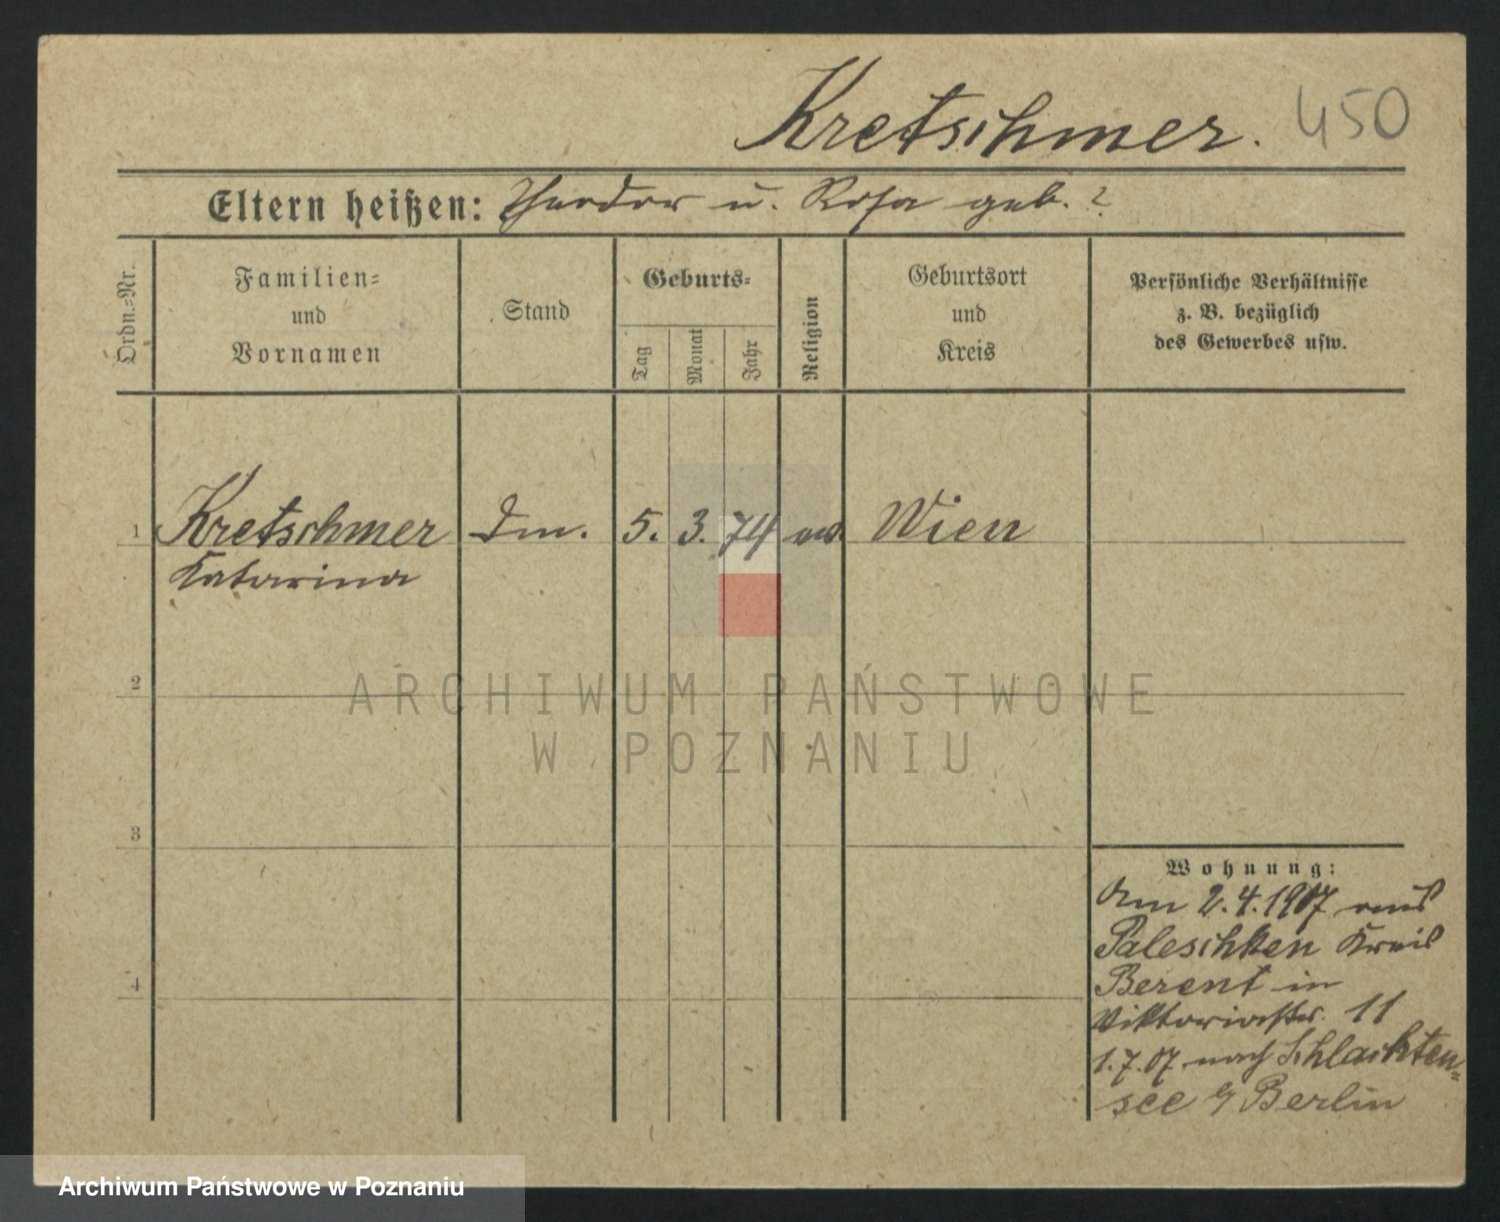 Kretschmer. 450
Eltern heißen: Theodor u. Rosa geb. ?
Ordn.=Nr.
Familien=
und
Vornamen
Stand
Geburts=
Tag
Monat
Jahr
Religion
Geburtsort
und
Kreis
Persönliche Verhältnisse
z. B. bezüglich
des Gewerbes usw.
1 Kretschmer 5. 3. 74 Wien
Katarina
2
ARCHIWUM PAŃSTWOWE
W POZNANIU
3
Wohnung:
Am 2.4.1907 aus
Paleschken Kreis
4
Berent in
Viktoriastr. 11
1.7.07 nach Schlachten=
see b/ Berlin
Archiwum Państwowe w Poznaniu